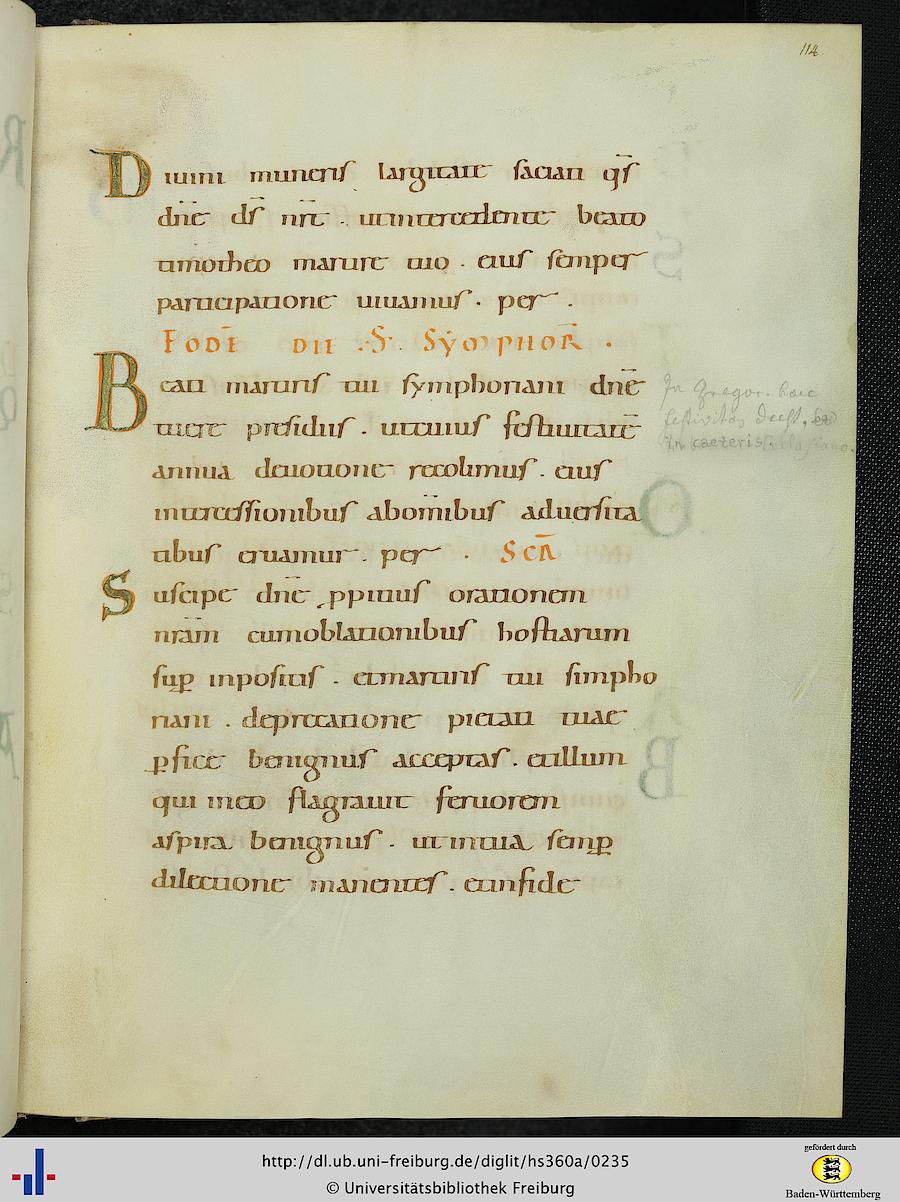 114
Diuini muneris largitate satiati q̄s
dn̄e ds̄ nr̄ . utintercedente beato
timotheo martyre tuo . eius semper
participatione uiuamus . per .
EODĒ DIE .S. SYMPHOR̄ .
Beati martiris tui symphoriani dn̄e
tuere presidiis . utcuius festiuitatē
annua deuotione recolimus . eius
intercessionibus abom̄ibus aduersita
tibus eruamur . per . SCR̄
Suscipe dn̄e ꝓpitius orationem
nr̄am cumoblationibus hostiarum
suꝑ inpositis . etmartiris tui simpho
riani . deprecatione pietati tuae
ꝑfice benignus acceptas . etillum
qui ineo flagrauit feruorem
aspira benignus . ut intua semꝑ
dilectione manentes . etinfide
In Gregor. haec
festivitas deest,
In caeteris
http://dl.ub.uni-freiburg.de/diglit/hs360a/0235
© Universitätsbibliothek Freiburg
gefördert durch
Baden-Württemberg